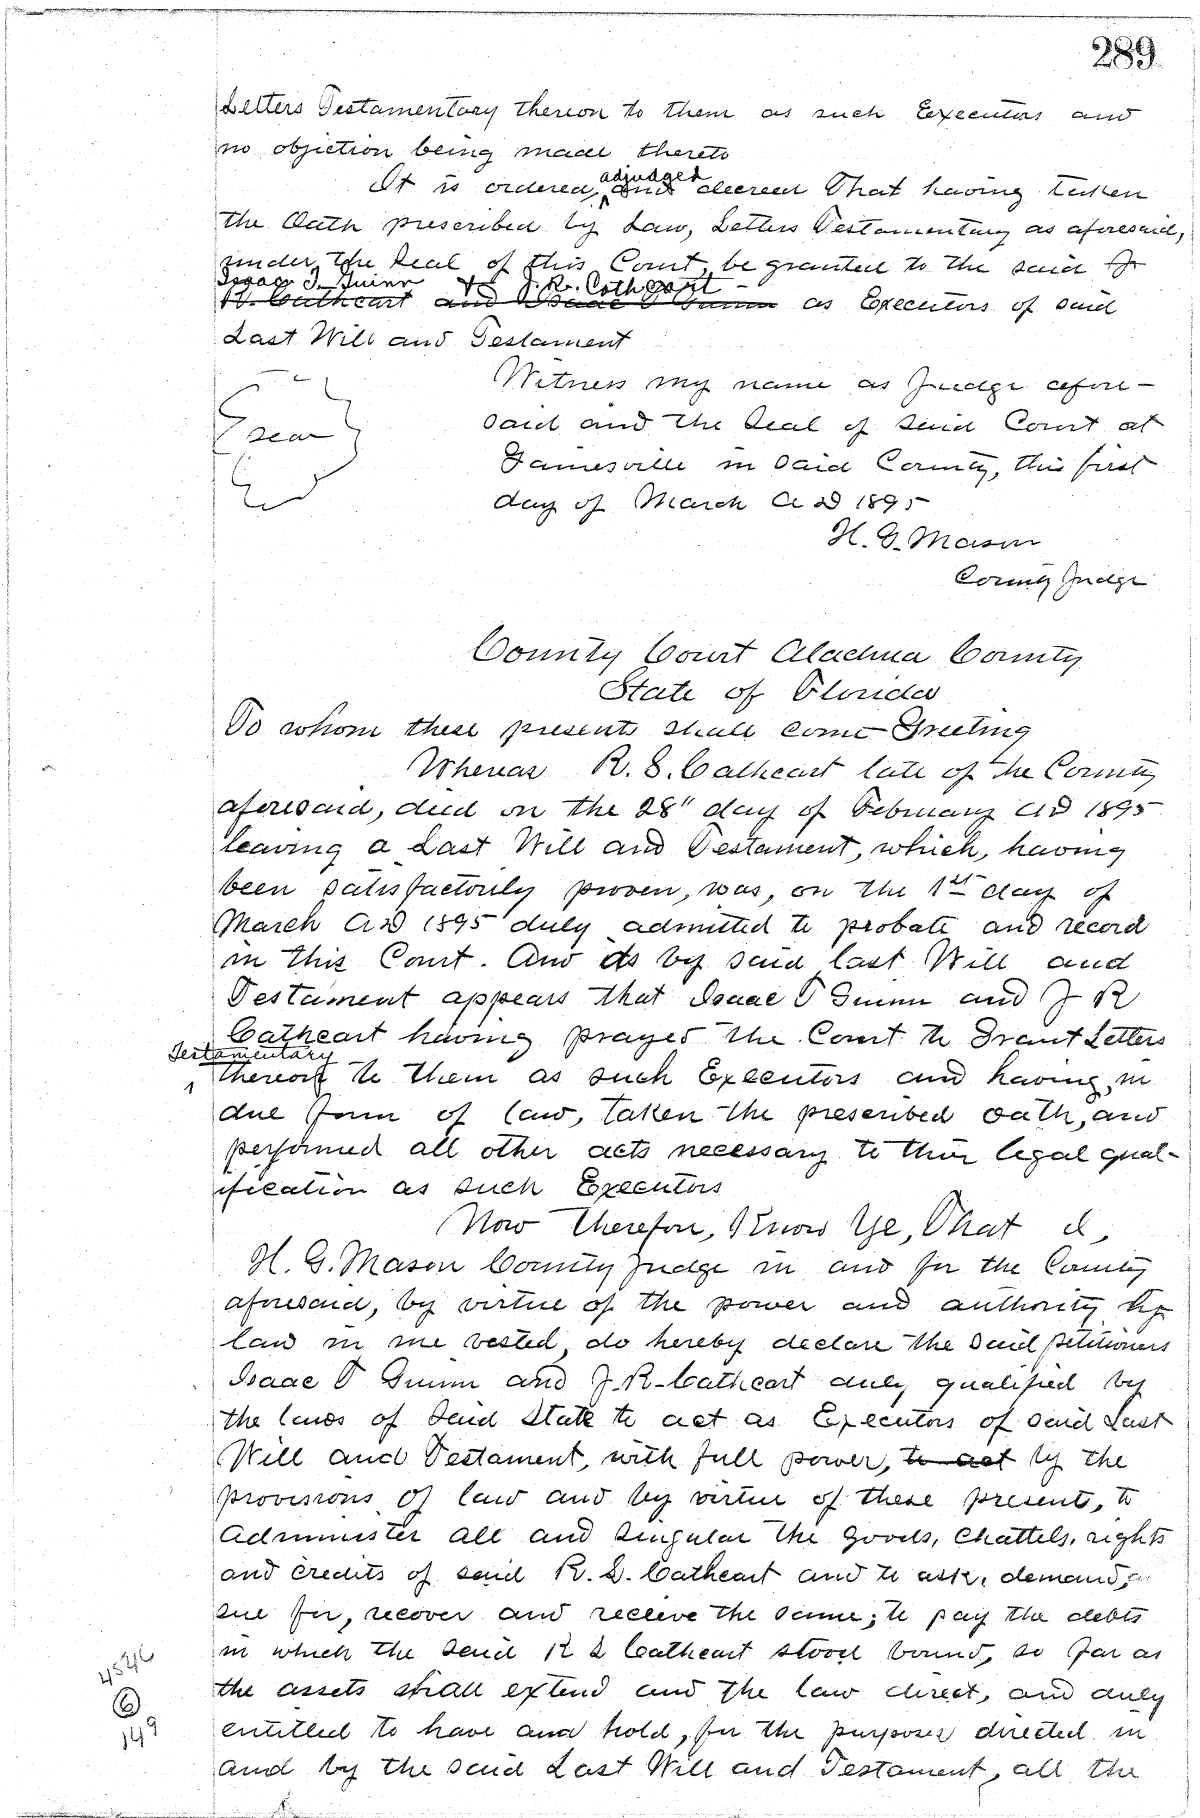 289
Letters Testamentary thereon to them as such Executors and
no objection being made thereto
It is ordered, adjudged and decreed That having taken
the Oath prescribed by Law, Letters Testamentary as aforesaid,
under the Seal of this Court, be granted to the said J
Isaac T. Guinn & J.R. Cathcart -
R. Cathcart and Isaac T Guinn as Executors of said
Last Will and Testament
Witness my name as Judge afore-
said and the Seal of said Court at
Seal
Gainesville in said County, this first
day of March A D 1895
H. G. Mason
County Judge
County Court Alachua County
State of Florida
To whom these presents shall come Greeting
Whereas R. S. Cathcart late of the County
aforesaid, died on the 28" day of February A D 1895
leaving a Last Will and Testament, which, having
been satisfactorily proven, was, on the 1st day of
March A D 1895 duly admitted to probate and record
in this Court. And as by said last Will and
Testament appears that Isaac T Guinn and J R
Cathcart having prayed the Court to Grant Letters
Testamentary
thereon to them as such Executors and having, in
due form of law, taken the prescribed oath, and
performed all other acts necessary to their legal qual-
ification as such Executors
Now Therefore, Know Ye, That I,
H. G. Mason County Judge in and for the County
aforesaid, by virtue of the power and authority by
law in me vested, do hereby declare the said petitioners
Isaac T Guinn and J. R. Cathcart duly qualified by
the laws of said State to act as Executors of said Last
Will and Testament, with full power, to act by the
provisions of law and by virtue of these presents, to
administer all and singular the goods, chattels, rights
and credits of said R. S. Cathcart and to ask, demand,
sue for, recover and receive the same; to pay the debts
in which the said R S Cathcart stood bound, so far as
the assets shall extend and the law direct, and duly
entitled to have and hold, for the purposes directed in
and by the said Last Will and Testament, all the
4546
6
149